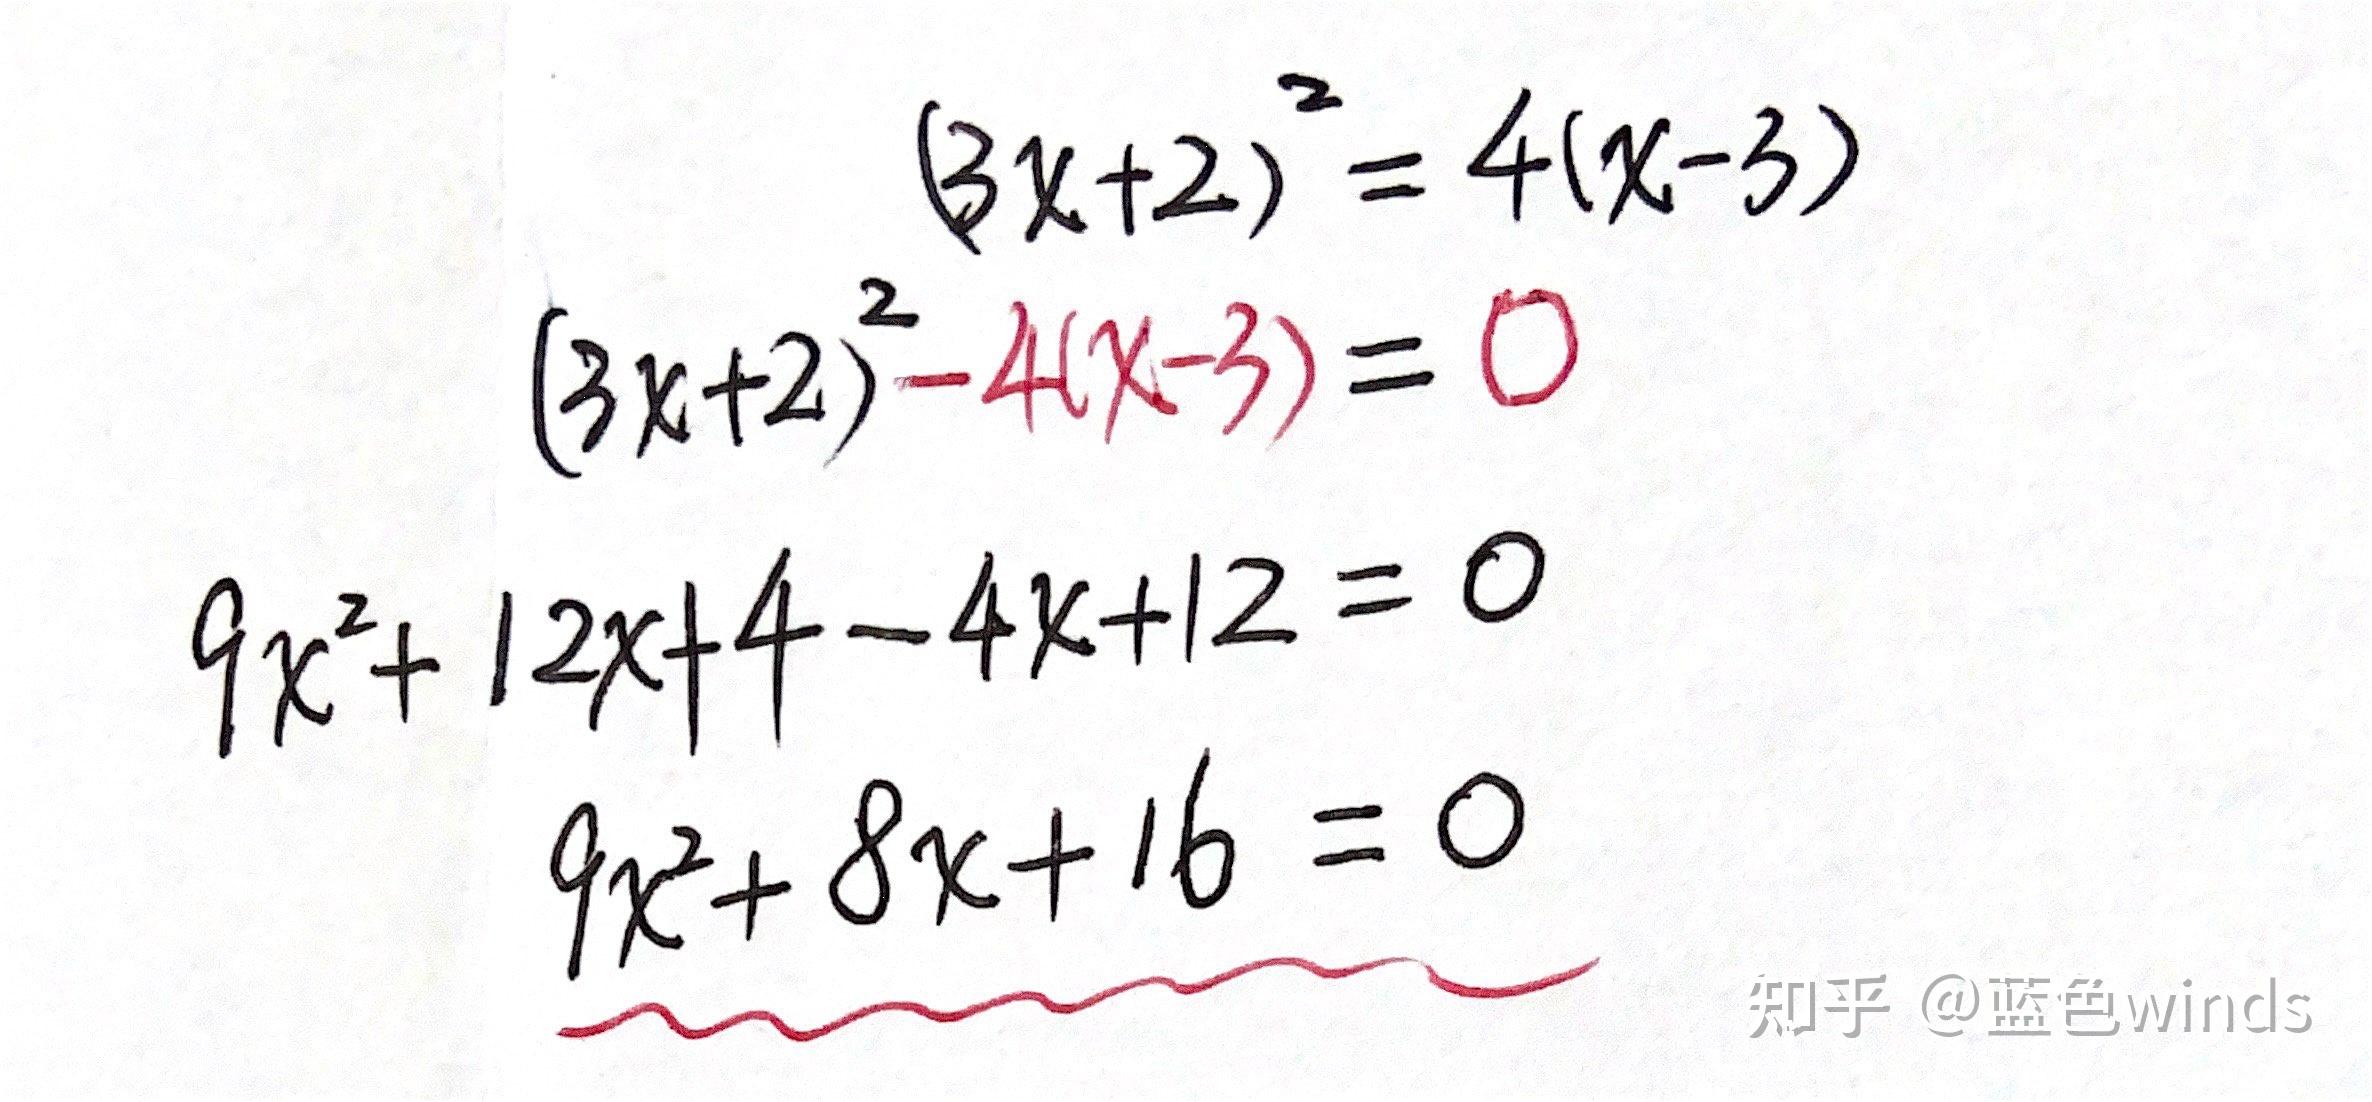 (3x+2)² = 4(x-3)
(3x+2)² - 4(x-3) = 0
9x² + 12x + 4 - 4x + 12 = 0
9x² + 8x + 16 = 0
知乎 @蓝色winds